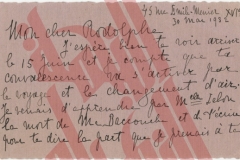 45 rue Emile-Menier XVIe
30 Mai 1932
Mon cher Rodolphe
J'espère bien te voir arriver
le 15 juin et je compte que ta
convalescence va s'activer par
le voyage et le changement d'air.
Je venais d'apprendre par Mme Lebon
la mort de M. et
te dire la part que je prenais à ta